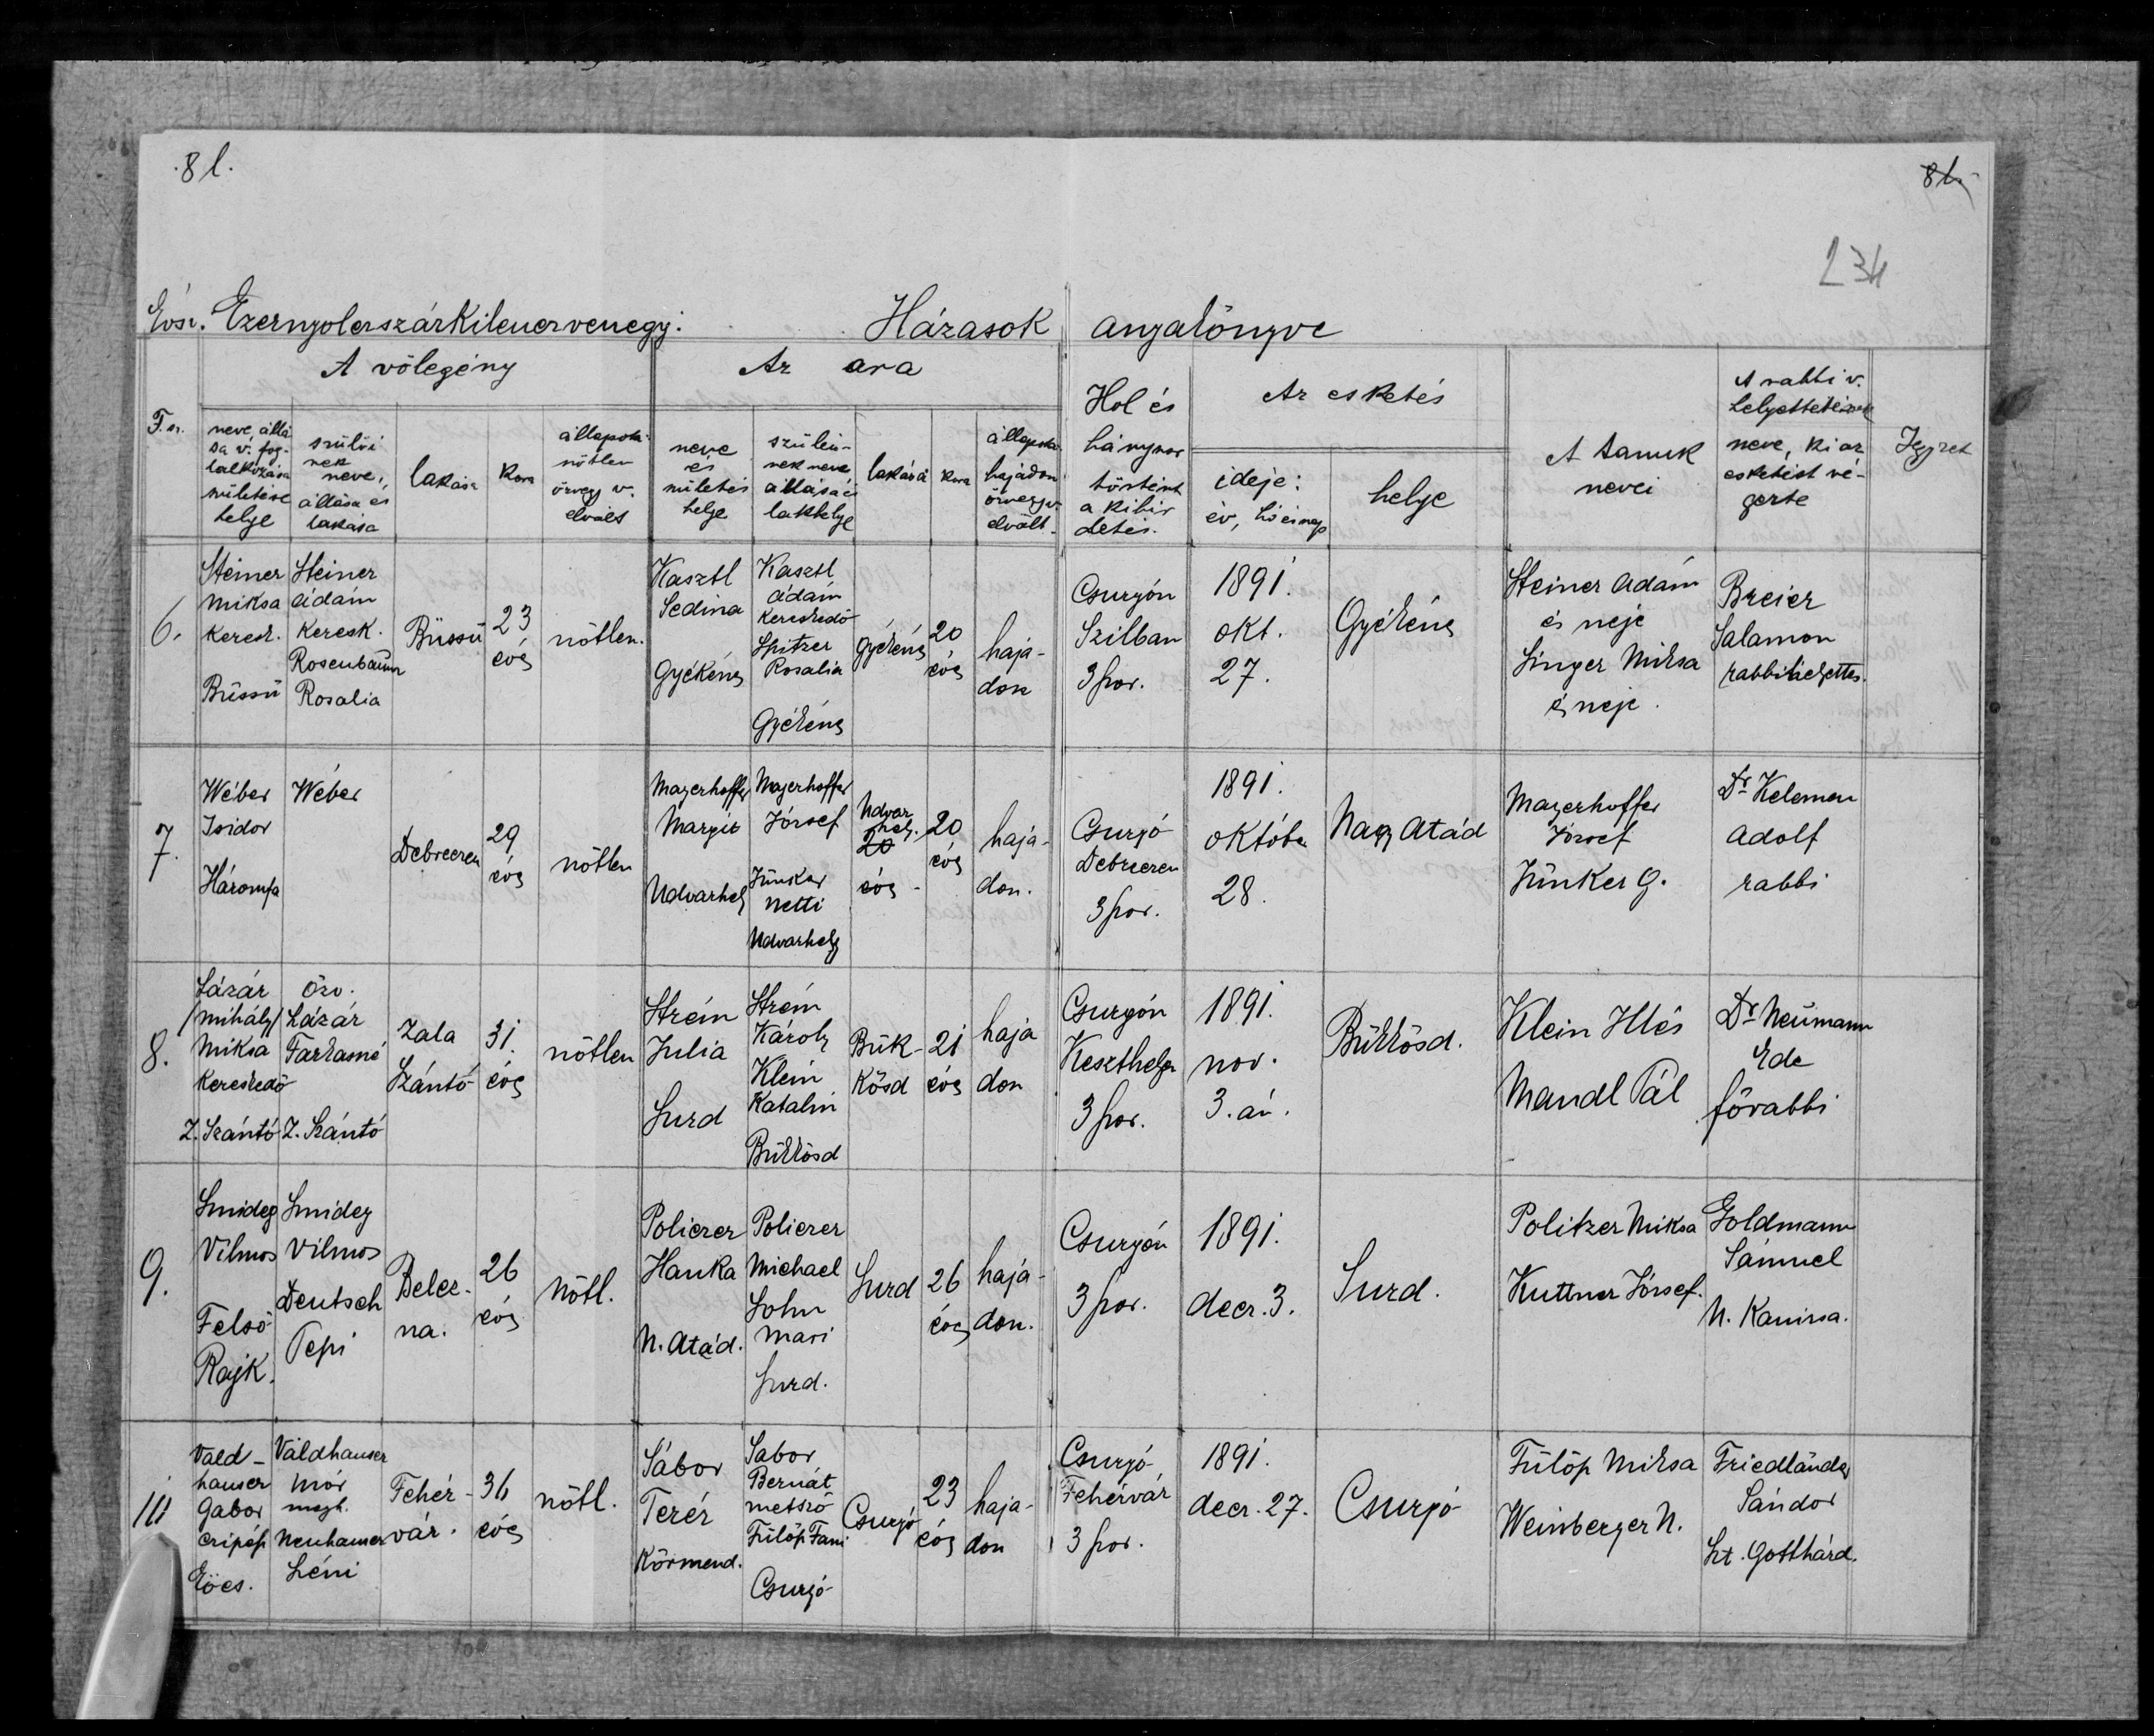 8 l.
8 l.
234
Évsz. Ezernyolcszázkilencvenegy. Házasok anyakönyve
A vőlegény
Az ara
Hol és hányszor történt a kihirdetés.
Az esketés
A tanuk nevei
A rabbi v. helyettesének neve, ki az esketést végezte
Jegyzet
F. sz.
neve, állása v. foglalkozása születése helye
szülőinek neve, állása és lakása
lakása
kora
állapota: nőtlen özvegy v. elvált
neve és születés helye
szüleinek neve állása és lakhelye
lakása
kora
állapota hajadon özvegy v. elvált.
ideje: év, hó és nap
helye
6.
Steiner
Miksa
keresk.
Büssü
Steiner
Ádám
keresk.
Rosenbaum
Rosalia
Büssü
23
éves
nőtlen.
Kasztl
Sedina
Gyékényes
Kasztl
Ádám
kereskedő
Spitzer
Rosalia
Gyékényes
Gyékényes
20
éves
haja-
don
Csurgón
Szilban
3 szor.
1891.
okt.
27.
Gyékényes
Steiner Adám
és neje
Singer Miksa
és neje.
Breier
Salamon
rabbihelyettes.
7.
Wéber
Isidor
Háromfa
Wéber
Debreczen
29
éves
nőtlen
Mayerhoffer
Margit
Udvarhely
Mayerhoffer
József
Jünker
Netti
Udvarhely
Udvar
hely.
20
éves
20
éves
haja-
don.
Csurgó
Debreczen
3 szor.
1891.
október
28.
Nagy Atád
Mayerhoffer
József
Jünker G.
Dr Kelemen
Adolf
rabbi
8.
Lázár
/Mihály/
Miksa
kereskedő
Z. Szántó
Özv.
Lázár
Farkasné
Z. Szántó
Zala
Szántó
31.
éves
nőtlen
Strém
Julia
Surd
Strém
Károly
Klein
Katalin
Bükkösd
Bük-
kösd
21
éves
haja
don
Csurgón
Keszthelyen
3 szor.
1891.
nov.
3. án.
Bükkösd.
Klein Illés
Mandl Pál
Dr Neümann
Ede
főrabbi
9.
Smideg
Vilmos
Felső
Rajk.
Smideg
Vilmos
Deutsch
Pepi
Belez-
na.
26
éves
nőtl.
Policzer
Hanka
N. Atád.
Policzer
Michael
Sohn
Mari
Surd.
Surd
26
éves
haja-
don.
Csurgón
3 szor.
1891.
decz. 3.
Surd.
Politzer Miksa
Kuttner József.
Goldmann
Sámuel
N. Kanizsa.
10
Vald-
hauser
Gabor
czipész
Eöcs.
Valdhauser
Mór
megh.
Neuhauser
Léni
Fehér-
vár.
34
éves
nőtl.
Sábor
Teréz
Körmend.
Sabor
Bernát
metsző
Fülöp Fani
Csurgó
Csurgó
23
éves
haja-
don
Csurgó
Fehérvár
3 szor.
1891.
decz. 27.
Csurgó
Fülöp Miksa
Weinberger N.
Friedländer
Sándor
Szt. Gotthárd.